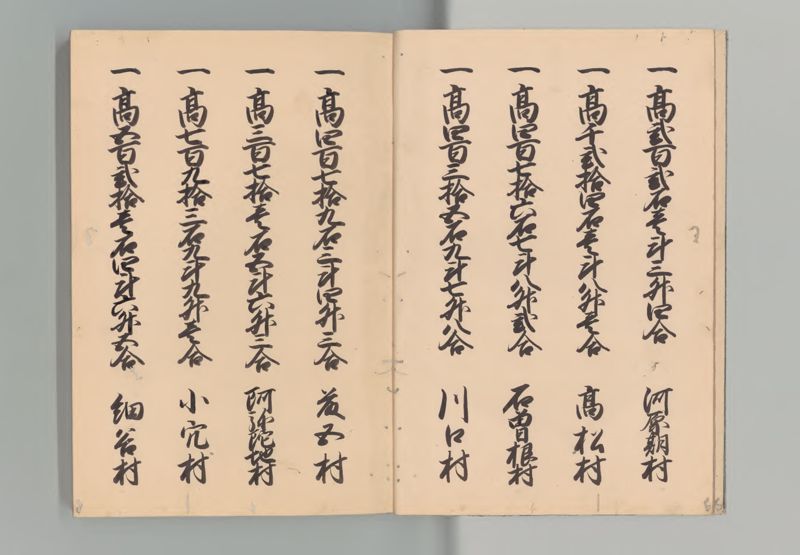 一高弐百弐石壱斗三升四合　河原明村
一高千弐拾四石壱斗八升壱合　高松村
一高四百七拾六石七斗八升弐合　石曽根村
一高四百三拾五石九斗七升八合　川口村
一高四百七拾九石二斗四升三合　五村
一高三百七拾壱石五斗六升二合　阿弥陀地村
一高七百九拾三石九斗九升壱合　小穴村
一高五百弐拾壱石四斗六升五合　細谷村